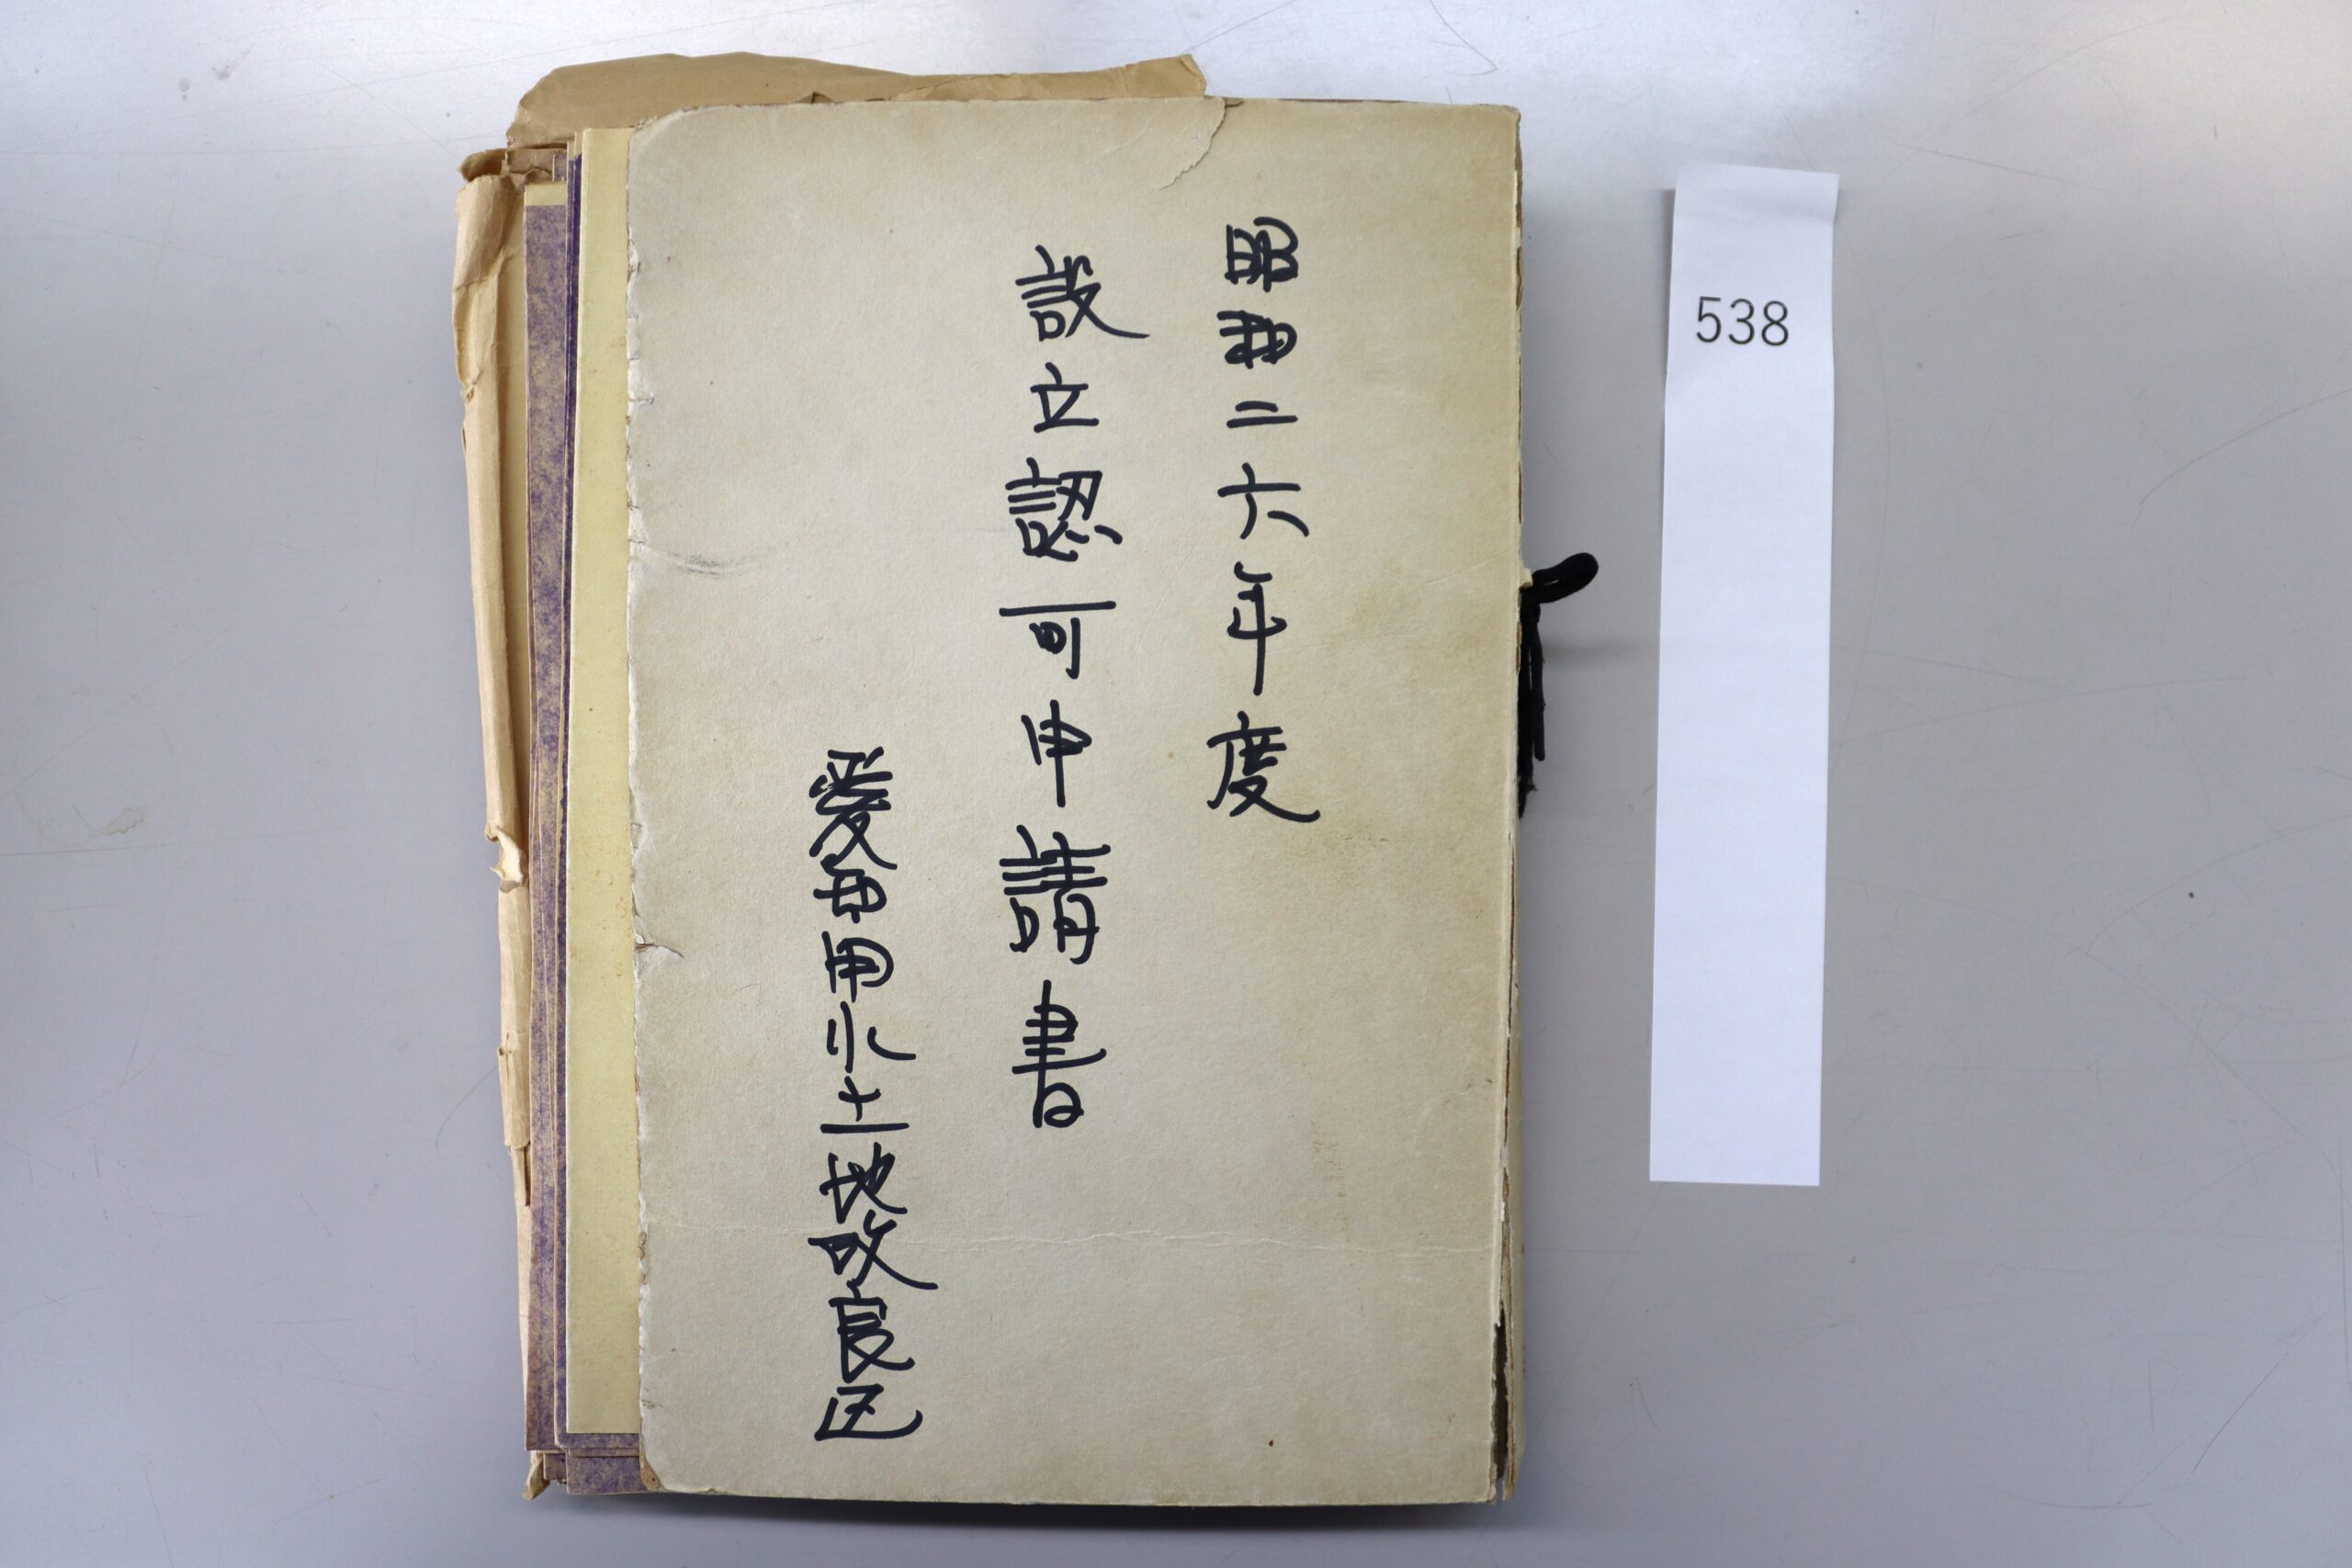 昭和二六年度
設立認可申請書
愛知用水土地改良区
538